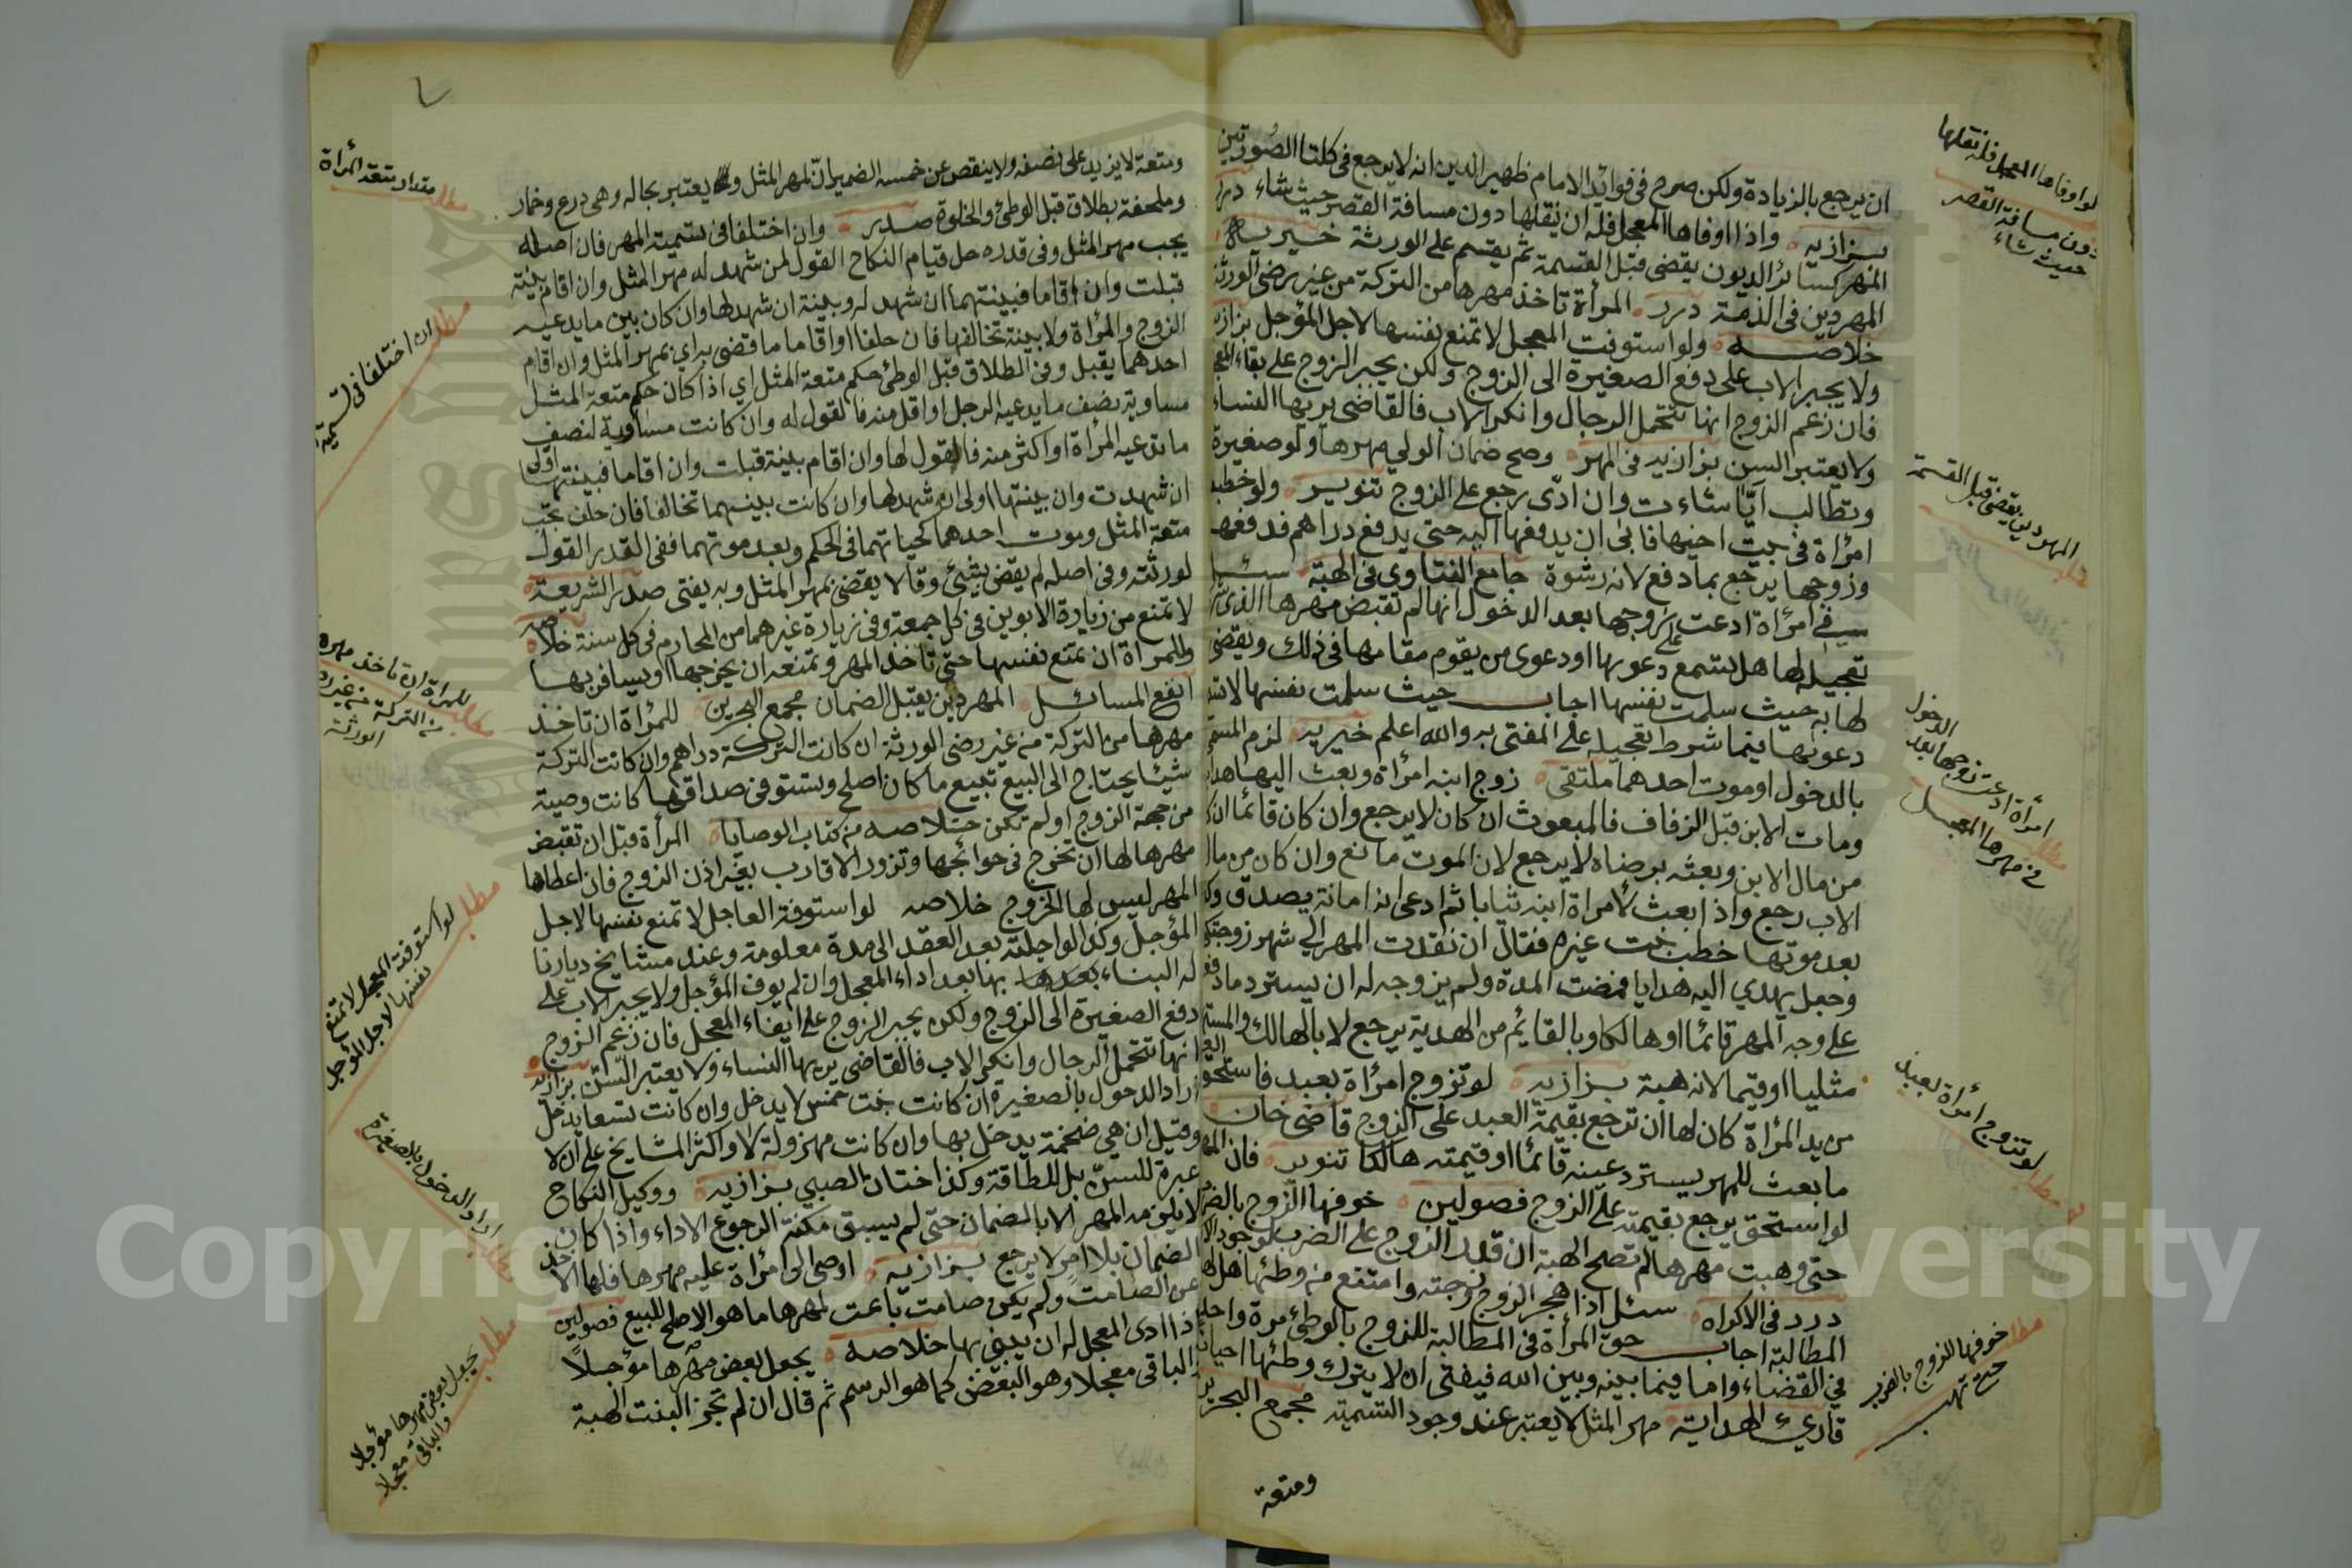 ان يرجع بالزيادة ولكن صرح في فوائد الامام ظهير الدين انه لا يرجع في كلتا الصورتين
بزازيه واذا اوفاها المعجل فله ان ينقلها دون مسافة القصر حيث شاء درر
المهر كسائر الديون يقضى قبل القسمة ثم يقسم على الورثة خيريه
المهر دين في الذمة درر المرأة تاخذ مهرها من التركة من غير رضى الورثة
خلاصه ولو استوفت المعجل لا تمنع نفسها لاجل المؤجل بزازيه
ولا يجبر الاب على دفع الصغيرة الى الزوج ولكن يجبر الزوج على بقاء المعجل
فان زعم الزوج انها تتحمل الرجال وانكر الاب فالقاضي يريها النساء
ولا يعتبر السن بزازيه في المهر وصح ضمان الولي مهرها ولو صغيرة
وتطالب أيّا شاءت وان ادّى رجع على الزوج تنوير ولو خطب
امرأة في بيت اخيها فابى ان يدفعها اليه حتى يدفع دراهم فدفعها
وزوجها يرجع بما دفع لانه رشوة جامع الفتاوى في الهبة سئل
في امرأة ادعت على زوجها بعد الدخول انها لم تقبض مهرها الذي شرط
تعجيله لها هل تسمع دعوىها او دعوى من يقوم مقامها في ذلك ويقضى
لها به حيث سلمت نفسها اجاب حيث سلمت نفسها لا تسمع
دعوىها فيما شرط تعجيله على المفتى به والله اعلم خيريه لزم المسمى
بالدخول او موت احدهما ملتقى زوج ابنه امرأة وبعث اليها هدايا
ومات الابن قبل الزفاف فالمبعوث ان كان لا يرجع وان كان قائما ان كان
من مال الابن وبعثه برضاه لا يرجع لان الموت مانع وان كان من مال
الاب رجع واذا بعث لامراة ابنه ثيابا ثم ادعى انه امانة يصدق
بعد موتها خطب بنت غيره فقال ان نقدت المهر الي شهر زوجتك
وجعل يهدي اليه هدايا فمضت المدة ولم يزوجه له ان يسترد ما دفع
على وجه المهر قائما او هالكا وبالقائم من الهدية يرجع لا بالهالك
مثليا او قيميا لانه هبة بزازيه لو تزوج امرأة بعبد فاستحق
من يد المرأة كان لها ان ترجع بقيمة العبد على الزوج قاضي خان
ما بعث للمهر يسترد عينه قائما او قيمته هالكا تنوير فان المهر
لو استحق يرجع بقيمته على الزوج فصولين خوفها الزوج بالضرب
حتى وهبت مهرها لم تصح الهبة ان قدر الزوج على الضرب لوجود الاكراه
درر في الاكراه سئل اذا هجر الزوج زوجته وامتنع من وطئها هل لها
المطالبة اجاب حق المرأة في المطالبة للزوج بالوطئ مرة واحدة
في القضاء واما فيما بينه وبين الله فيفتى ان لا يترك وطئها احيانا
قارئ الهداية مهر المثل لا يعتبر عند وجود التسمية مجمع البحرين
ومتعة
لو اوفاها المعجل فله نقلها
دون مسافة القصر
حيث شاء
المهر دين يقضى قبل القسمة
مطلب
امرأة ادعت زوجها بعد الدخول
في مهرها المعجل
مطلب
لو تزوج امرأة بعبد
مطلب
خوفها الزوج بالضرب
حتى تهب
ومتعة لا يزيد على نصفه ولا ينقص عن خمسه الضمير ان لمهر المثل ويعتبر بحاله وهي درع وخمار
وملحفة بطلاق قبل الوطئ والخلوة صدر وان اختلفا في تسمية المهر فان اصله
يجب مهر المثل وفي قدره حل قيام النكاح القول لمن شهد له مهر المثل وان اقام بينة
قبلت وان اقاما فبينتها ان شهد له وبينة ان شهد لها وان كان بين ما يدعيه
الزوج والمرأة ولا بينة تخالفا فان حلفا او اقاما ما قضى براي بمهر المثل وان اقام
احدهما يقبل وفي الطلاق قبل الوطئ حكم متعة المثل اي اذا كان حكم متعة المثل
مساوية نصف ما يدعيه الرجل او اقل منه فالقول له وان كانت مساوية لنصف
ما تدعيه المرأة او اكثر منه فالقول لها وان اقام بينة قبلت وان اقاما فبينتها اولى
ان شهدت وان بينتها اولى ان شهد لها وان كانت بينهما تخالفا فان حلف تجب
متعة المثل وموت احدهما كحياتهما في الحكم وبعد موتهما ففي القدر القول
لورثته وفي اصله لم يقض بشئ وقالا يقضى بمهر المثل وبه يفتى صدر الشريعة
لا تمنع من زيارة الابوين في كل جمعة وفي زيارة غيرهما من المحارم في كل سنة خلاصه
وللمرأة ان تمنع نفسها حتى تاخذ المهر وتمنعه ان يخرجها او يسافر بها
انفع المسائل المهر دين يقبل الضمان مجمع البحرين للمرأة ان تاخذ
مهرها من التركة من غير رضى الورثة ان كانت التركة دراهم وان كانت التركة
شيئا يحتاج الى البيع تبيع ما كان اصلح وتستوفي صداقها كانت وصية
من جهة الزوج او لم تكن خلاصه من كتاب الوصايا المرأة قبل ان تقبض
مهرها لها ان تخرج في حوائجها وتزور الاقارب بغير اذن الزوج فان اعطاها
المهر ليس لها الخروج خلاصه لو استوفت العاجل لا تمنع نفسها لاجل
المؤجل وكذا لو اجلته بعد العقد الى مدة معلومة وعند مشايخ ديارنا
له البناء بعدها بها بعد اداء المعجل وان لم يوف المؤجل ولا يجبر الاب على
دفع الصغيرة الى الزوج ولكن يجبر الزوج على ايفاء المعجل فان زعم الزوج
انها تتحمل الرجال وانكر الاب فالقاضي يريها النساء ولا يعتبر السن بزازيه
اراد الدخول بالصغيرة ان كانت بنت خمس لا يدخل وان كانت تسعا يدخل
وقيل ان هي ضخمة يدخل بها وان كانت مهزولة لا واكثر المشايخ على ان لا
عبرة للسن بل للطاقة وكذا ختان الصبي بزازيه ووكيل النكاح
لا يلزمه المهر الا بالضمان حتى لم يسبق مكنة الرجوع الاداء واذا كان
الضمان بلا امر لا يرجع بزازيه اوصى الى امرأة عليه مهرها فلها الاخذ
عن الصامت ولم يكن صامت باعت لمهرها ما هو الاصلح للبيع فصولين
اذا ادى المعجل له ان يبني بها خلاصه يجعل بعض مهرها مؤجلا
الباقي معجلا وهو البعض كما هو الرسم ثم قال ان لم تجز البنت الهبة
مطلب مقدار متعة المرأة
مطلب
ان اختلفا في تسمية
للمرأة ان تاخذ مهرها
من التركة من غير رضى
الورثة
مطلب
لو استوفت المعجل لا تمنع
نفسها لاجل المؤجل
مطلب
اراد الدخول بالصغيرة
مطلب
يجعل بعض مهرها مؤجلا
والباقي معجلا
Copyright University